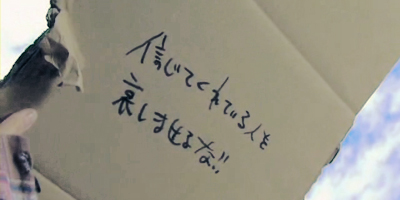 信じてくれている人を
哀しませるな!!